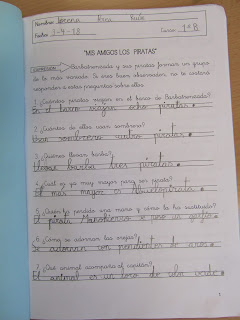 Nombre: Lorena Peña Ruiz
Fecha: 3-4-13 Curso: 1ºB
"MIS AMIGOS LOS PIRATAS"
Barbatremenda y sus piratas forman un grupo
de lo más variado. Si eres buen observador, no te costará
responder a estas preguntas sobre ellos.
1. ¿Cuántos piratas viajan en el barco de Barbatremenda?
En el barco viajan ocho piratas.
2. ¿Cuántos de ellos usan sombrero?
Usan sombrero cuatro piratas.
3. ¿Quiénes llevan barba?
Llevan barba tres piratas.
4. ¿Cuál es ya muy mayor para ser pirata?
El mas mayor es Abuelopirata.
5. ¿Quién ha perdido una mano y cómo la ha sustituido?
El pirata se puso un garfio.
6. ¿Cómo se adornan las orejas?
Se adornan con pendientes de aros.
7. ¿Qué animal acompaña al capitán?
El animal es un loro de color verde.
1